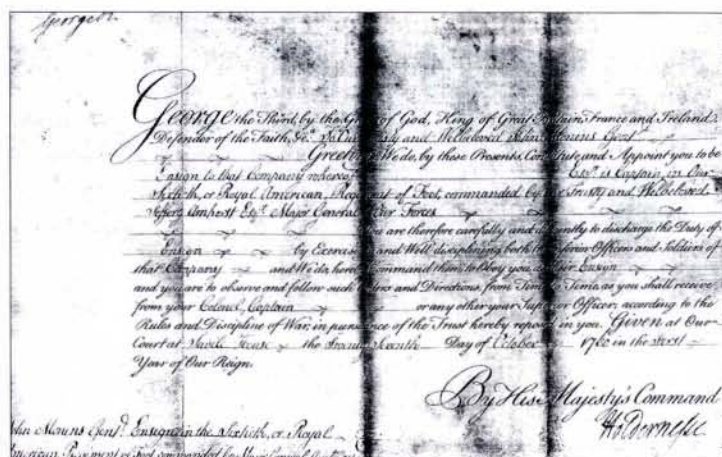 George R
George the Third, by the Grace of God, King of Great Britain, France and Ireland,
Defender of the Faith, &c. To Our Trusty and Welbeloved John Monins Gent.
Greeting. We do, by these Presents, Constitute and Appoint you to be
Ensign to that Company whereof Esqr. is Captain, in Our
Sixtieth, or Royal American, Regiment of Foot, commanded by Our Trusty and Welbeloved
Jeffery Amherst Esqr. Major General of Our Forces
You are therefore carefully and diligently to discharge the Duty of
Ensign by Exercising and Well disciplining both the Inferior Officers and Soldiers of
that Company and We do hereby Command them to Obey you as their Ensign
and you are to observe and follow such Orders and Directions, from Time to Time, as you shall receive
from your Colonel, Captain or any other your Superior Officer, according to the
Rules and Discipline of War, in pursuance of the Trust hereby reposed in you. Given at Our
Court at Savile House the Twenty Seventh Day of October 1760 in the First
Year of Our Reign.
By His Majesty's Command
Holdernesse
John Monins Gent. Ensign in the Sixtieth, or Royal
American Regiment of Foot commanded by Major General